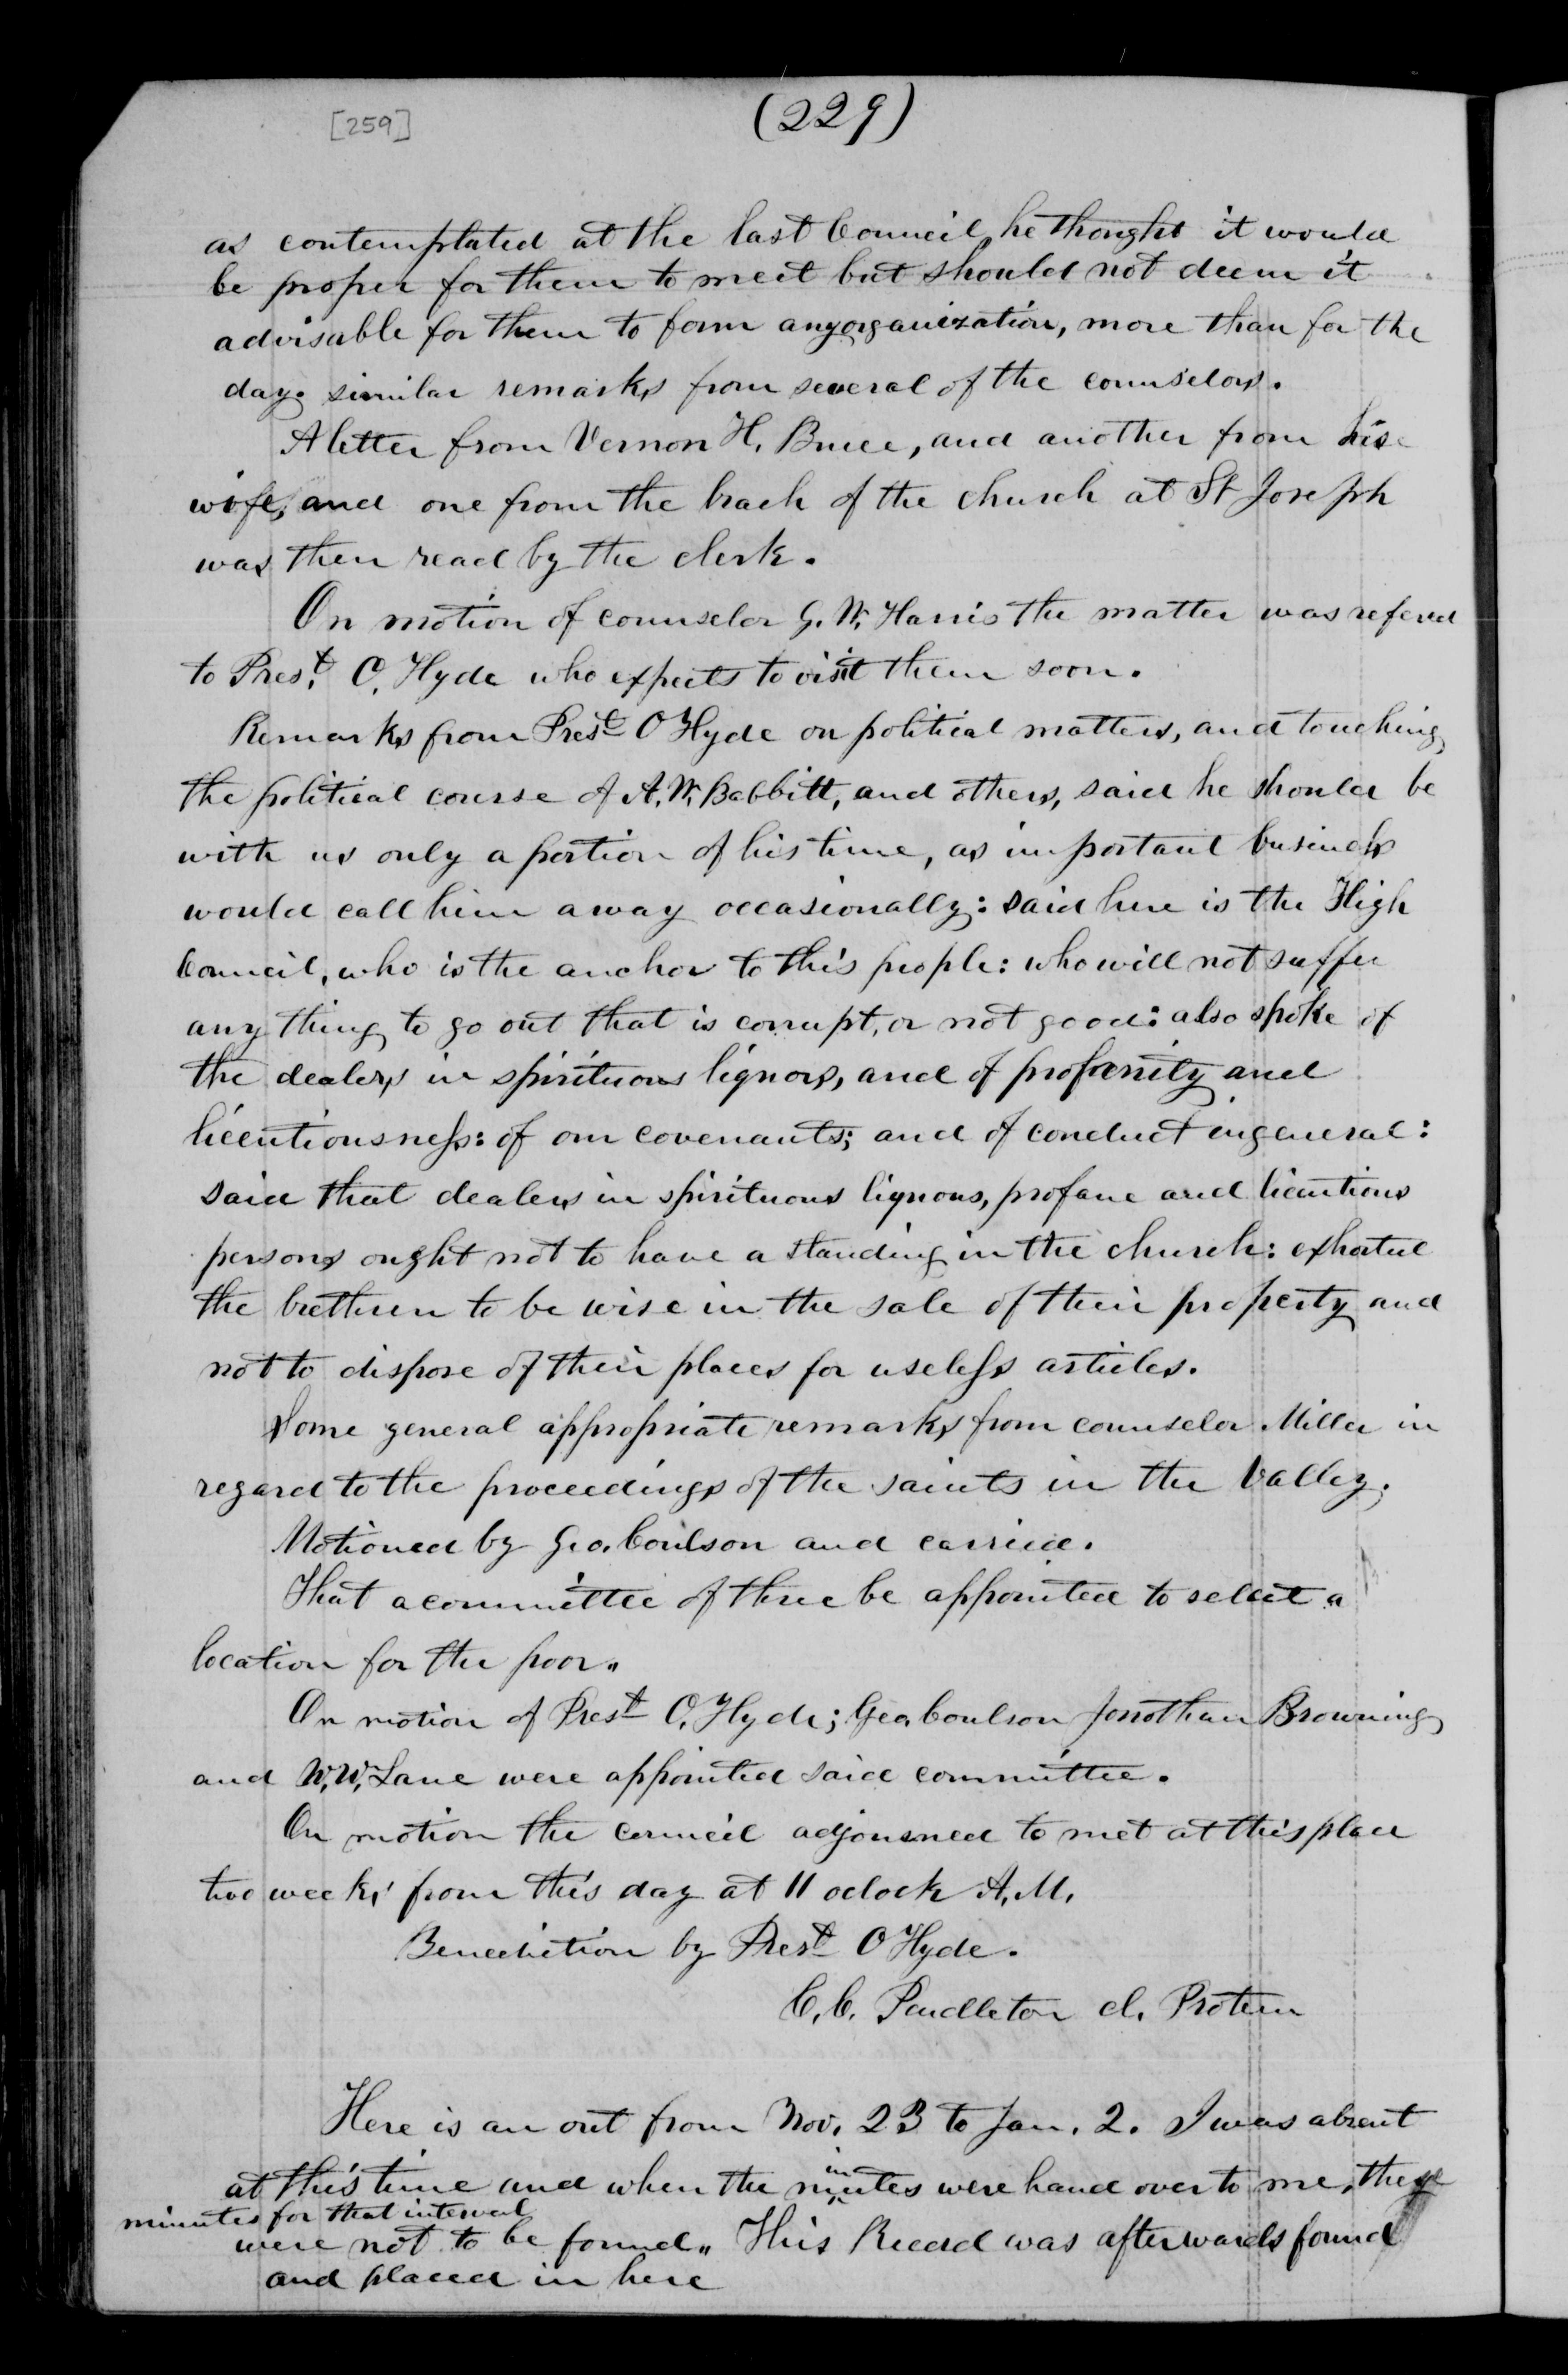 [259]
(229)
as contemplated at the last Council, he thought it would
be proper for them to meet but should not deem it
advisable for them to form any organization, more than for the
day. similar remarks from several of the counselors.
A letter from Vernon H. Bruce, and another from his
wife, and one from the brach of the church at St Joseph
was then read by the clerk.
On motion of counselor G. W. Harris the matter was refered
to Prest. O. Hyde who expects to visit them soon.
Remarks from Prest O Hyde on political matters, and touching
the political course of A. W. Babbitt, and others, said he should be
with us only a portion of his time, as important business
would call him away occasionally: said here is the High
Council, who is the anchor to this people: who will not suffer
any thing to go out that is corrupt, or not good: also spoke of
the dealers in spirituous liquors, and of profanity and
licentiousness: of our covenants; and of conduct in general:
said that dealers in spirituous liquors, profane and licentious
persons ought not to have a standing in the church: exhorted
the brethren to be wise in the sale of their property and
not to dispose of their places for useless articles.
Some general appropriate remarks from counselor Miller in
regard to the proceedings of the saints in the Valley.
Motioned by Geo. Coulson and carried.
That a committee of three be appointed to select a
location for the poor"
On motion of Prest O. Hyde; Geo. Coulson Jonothan Browning
and W. W. Lane were appointed said committee.
On motion the Council adjourned to met at this place
two weeks from this day at 11 oclock A. M.
Benediction by Prest O Hyde.
C. C. Pendleton cl. Protem
Here is an out from Nov. 23 to Jan. 2. I was absent
at this time and when the minutes were hand over to me, the
minutes for that interval
were not to be found" This Record was afterwards found
and placed in here